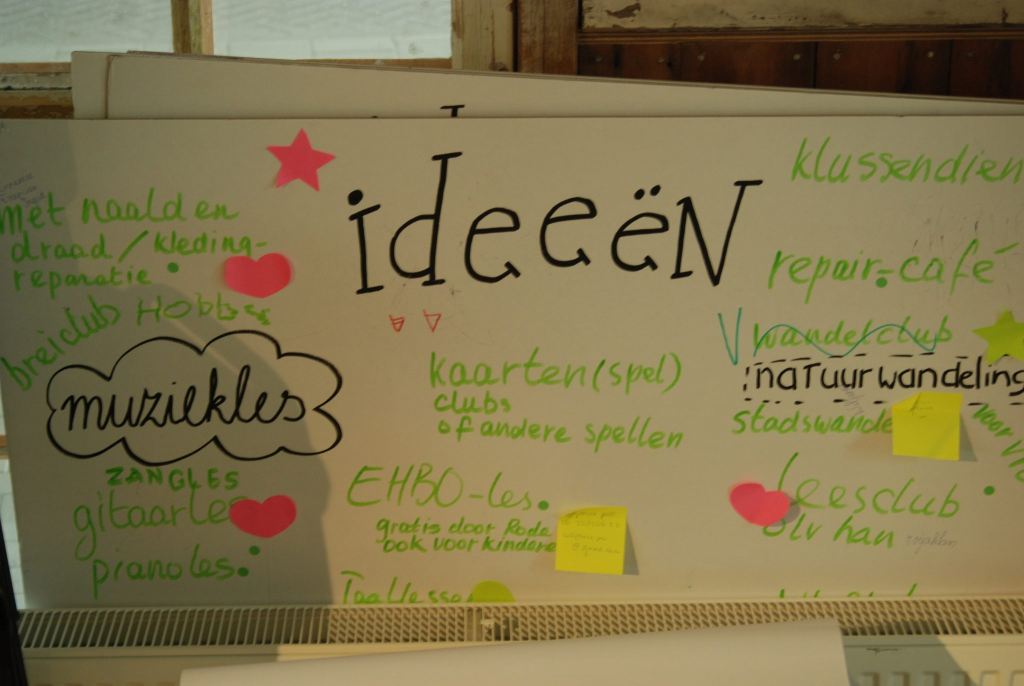 ideeën
met naald en
draad / kleding-
reparatie
breiclub HOBBY
muziekles
ZANGLES
gitaarles
pianoles.
kaarten(spel)
clubs
of andere spellen
EHBO-les.
gratis door Rode
ook voor kindere
Taallesse
klussendien
repair-café
V wandelclub
natuurwandeling
stadswande
voor
leesclub
olv han